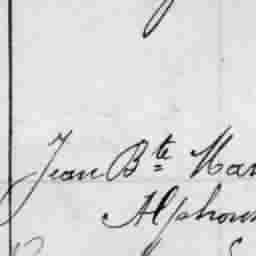 Jean Bte Mar
Alphons